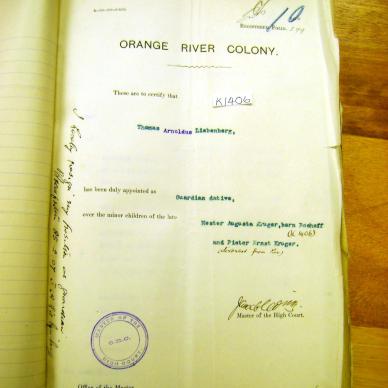 10.
ORANGE RIVER COLONY.
These are to certify that
K1406
Thomas Arnoldus Liebenberg,
has been duly appointed as
Guardian dative,
over the minor children of the late
Hester Augusta Kruger, born Boshoff
(K 1406)
and Pieter Ernst Kruger.
Master of the High Court.
MASTER OF THE
O.R.C.
Office of the Master
I hereby resign my position as guardian